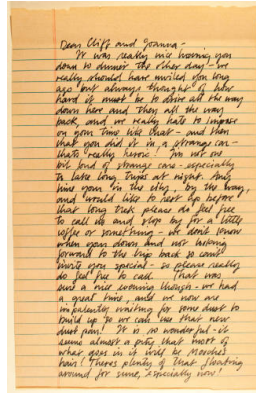 Dear Cliff and Joanna -
It was really nice having you
down to dinner the other day - we
really should have invited you long
ago but always thought of how
hard it must be to drive all the way
down here and then all the way
back, and we really hate to impose
on your time like that - and then
that you did it in a strange car -
that's really heroic! I'm not one
bit fond of strange cars - especially
in late long trips at night. Any
time you're in the city, by the way,
and would like to rest up before
that long trek please do feel free
to call us and stop by for a little
coffee or something - we don't know
when you're down and not looking
forward to the trip back so can't
invite you special - so please really
do feel free to call. That was
such a nice evening though - we had
a great time, and we now are
impatiently waiting for some dust to
build up so we can use that new
dust pan! It is so wonderful - it
seems almost a pity that most of
what goes in it will be
hair! There's plenty of that floating
around for sure, especially now!